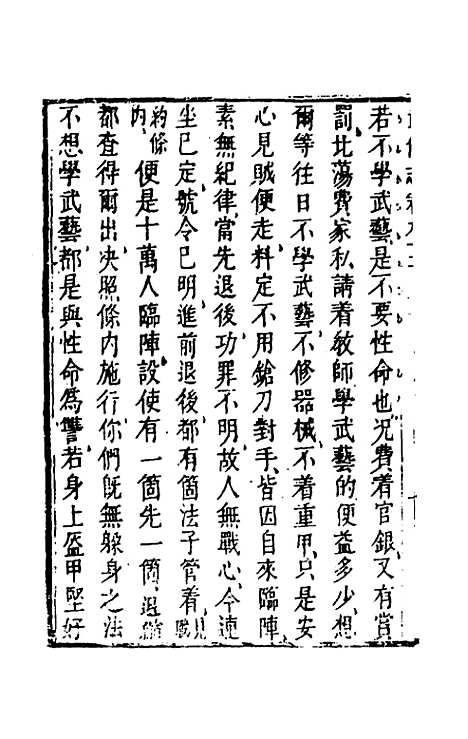 若不學武藝是不要性命也況費着官銀又有賞
罰比蕩費家私請着教師學武藝的便益多少想
爾等往日不學武藝不修器械不着重甲只是安
心見賊便走料定不用鎗刀對手皆因自來臨陣
素無紀律當先退後功罪不明故人無戰心今連
坐已定號令已明進前退後都有箇法子管着見戰
約條內便是十萬人臨陣設使有一箇先一箇退
都查得爾出决照條內施行你們旣無躲身之法
不想學武藝都是與性命爲讐若身上盔甲堅好